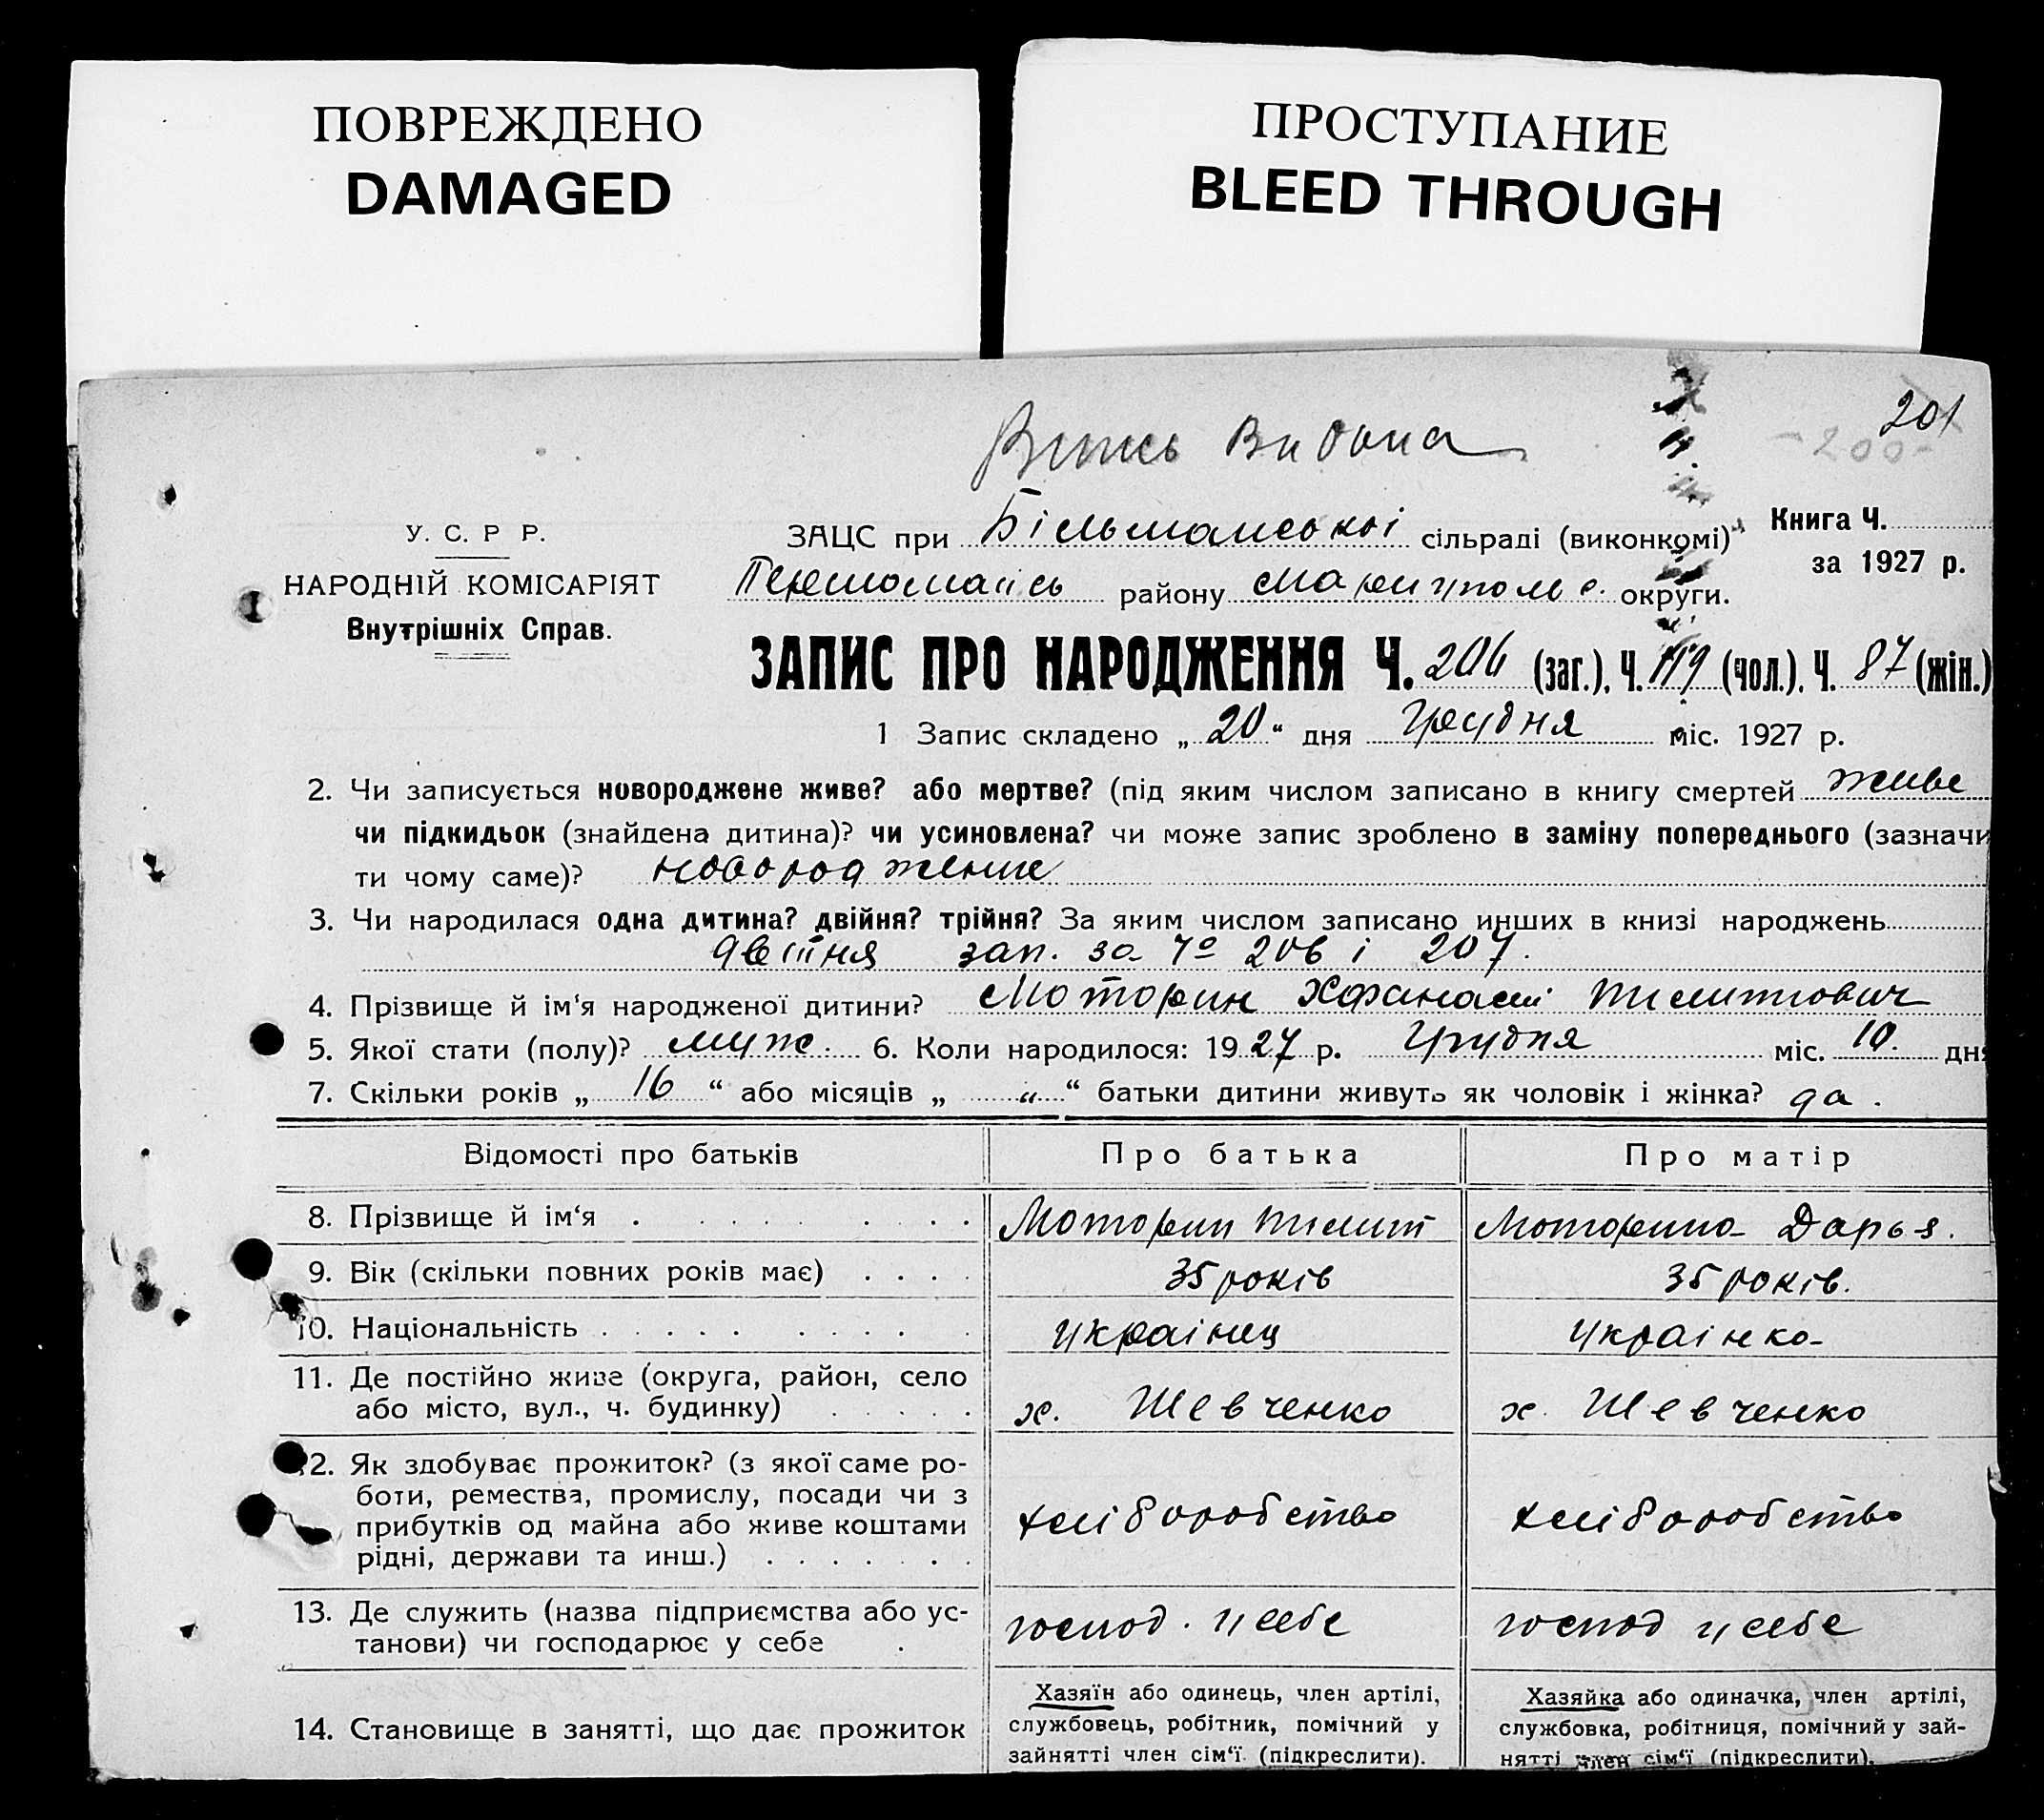 ПОВРЕЖДЕНО
DAMAGED
ПРОСТУПАНИЕ
BLEED THROUGH
201
-200-
Витсь Видана
У. С. Р Р.
НАРОДНІЙ КОМІСАРІЯТ
Внутрішніх Справ.
ЗАЦС при Більманської сільраді (виконкомі)
Книга Ч.
за 1927 р.
Першомайсь району Маріуполь с. округи.
ЗАПИС ПРО НАРОДЖЕННЯ Ч. 206 (заг.), Ч. 119 (чол.), Ч. 87 (жін.)
1 Запис складено „ 20 “ дня Грудня міс. 1927 р.
2. Чи записується новороджене живе? або мертве? (під яким числом записано в книгу смертей живе
чи підкидьок (знайдена дитина)? чи усиновлена? чи може запис зроблено в заміну попереднього (зазначи
ти чому саме)? новородженне
3. Чи народилася одна дитина? двійня? трійня? За яким числом записано инших в книзі народжень
двійня зап. за № 206 і 207.
4. Прізвище й ім‘я народженої дитини? Моторин Хфанасій Тимитович
5. Якої стати (полу)? муж. 6. Коли народилося: 1927 р. Грудня міс. 10. дня
7. Скільки років „ 16 “ або місяців „ “ батьки дитини живуть як чоловік і жінка? да.
Відомості про батьків
Про батька
Про матір
8. Прізвище й ім‘я
Моторин
Моторина Дарья.
9. Вік (скільки повних років має)
35 років
35 років.
10. Національність
українец
українка
11. Де постійно живе (округа, район, село
або місто, вул., ч. будинку)
х. Шевченко
х. Шевченко
12. Як здобуває прожиток? (з якої саме ро-
боти, ремества, промислу, посади чи з
прибутків од майна або живе коштами
рідні, держави та инш.)
хліборобство
хліборобство
13. Де служить (назва підприємства або ус-
танови) чи господарює у себе
господ. у себе
господ у себе
14. Становище в занятті, що дає прожиток
Хазяїн або одинець, член артілі,
службовець, робітник, помічний у
зайнятті член сім‘ї (підкреслити).
Хазяйка або одиначка, член артілі,
службовка, робітниця, помічний у зай-
нятті член сім‘ї (підкреслити).